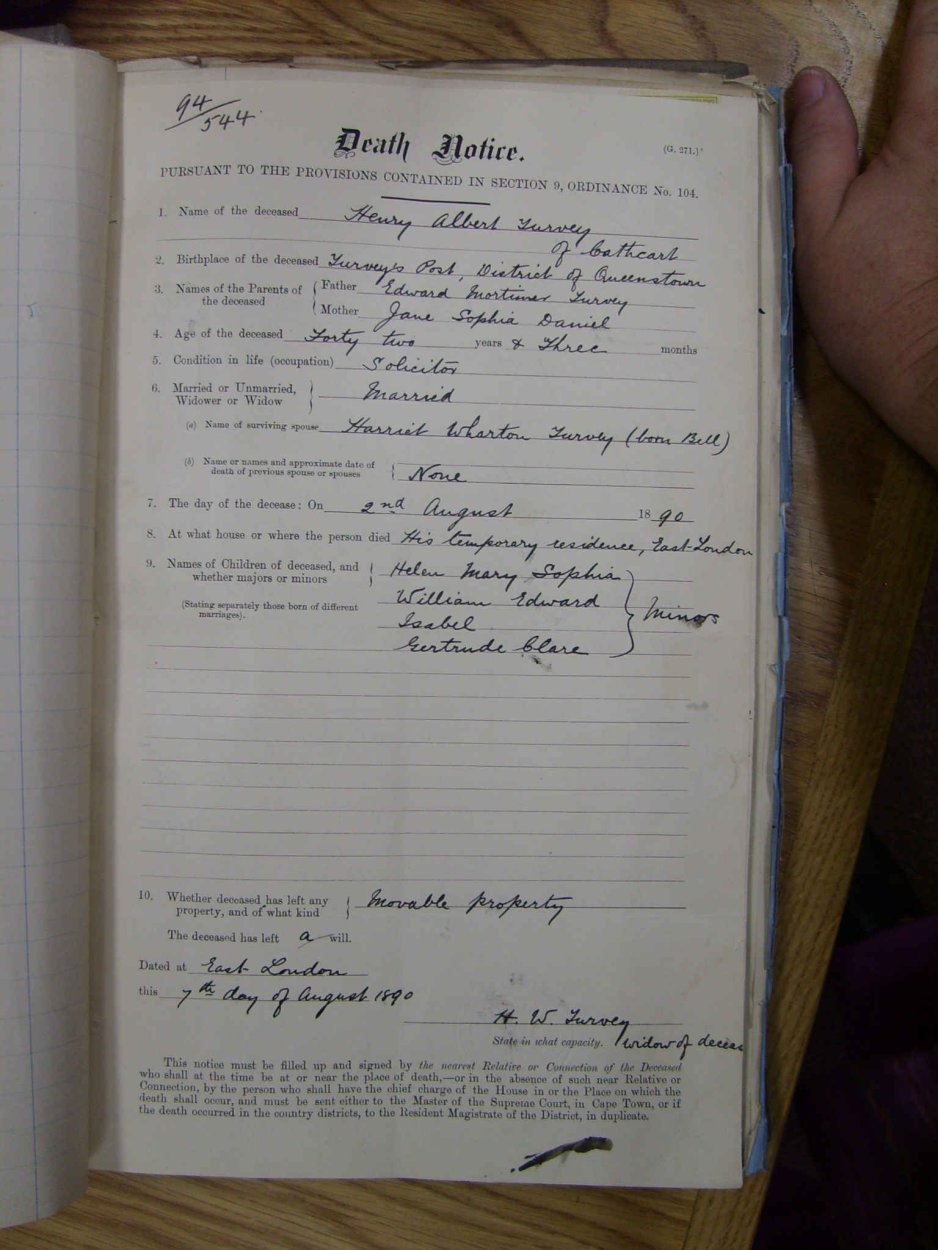 94/544
Death Notice.
(G. 271.)
PURSUANT TO THE PROVISIONS CONTAINED IN SECTION 9, ORDINANCE No. 104.
1. Name of the deceased Henry Albert Turvey
of Cathcart
2. Birthplace of the deceased Turvey's Post, District of Queenstown
3. Names of the Parents of the deceased { Father Edward Mortimer Turvey
Mother Jane Sophia Daniel
4. Age of the deceased Forty two years & Three months
5. Condition in life (occupation) Solicitor
6. Married or Unmarried, Widower or Widow } Married
(a) Name of surviving spouse Harriet Wharton Turvey (born Bell)
(b) Name or names and approximate date of death of previous spouse or spouses { None
7. The day of the decease: On 2nd August 1890
8. At what house or where the person died His temporary residence, East London
9. Names of Children of deceased, and whether majors or minors { Helen Mary Sophia
(Stating separately those born of different marriages). William Edward } Minors
Isabel
Gertrude Clare
10. Whether deceased has left any property, and of what kind } Movable property
The deceased has left a will.
Dated at East London
this 7th day of August 1890
H. W. Turvey
State in what capacity. widow of deceas
This notice must be filled up and signed by the nearest Relative or Connection of the Deceased
who shall at the time be at or near the place of death,—or in the absence of such near Relative or
Connection, by the person who shall have the chief charge of the House in or the Place on which the
death shall occur, and must be sent either to the Master of the Supreme Court, in Cape Town, or if
the death occurred in the country districts, to the Resident Magistrate of the District, in duplicate.